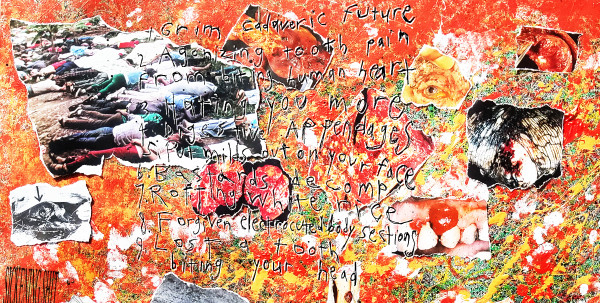 1. Grim cadaveric future
2. Agonizing tooth pain
from biting human heart
3. Hating you more
4. Pigs two Appendages
5. Put out on your face
6. Bastards decomp
7. Rotting white rice
8. Forgiven electrocuted body sections
9. Lost a tooth
biting your head